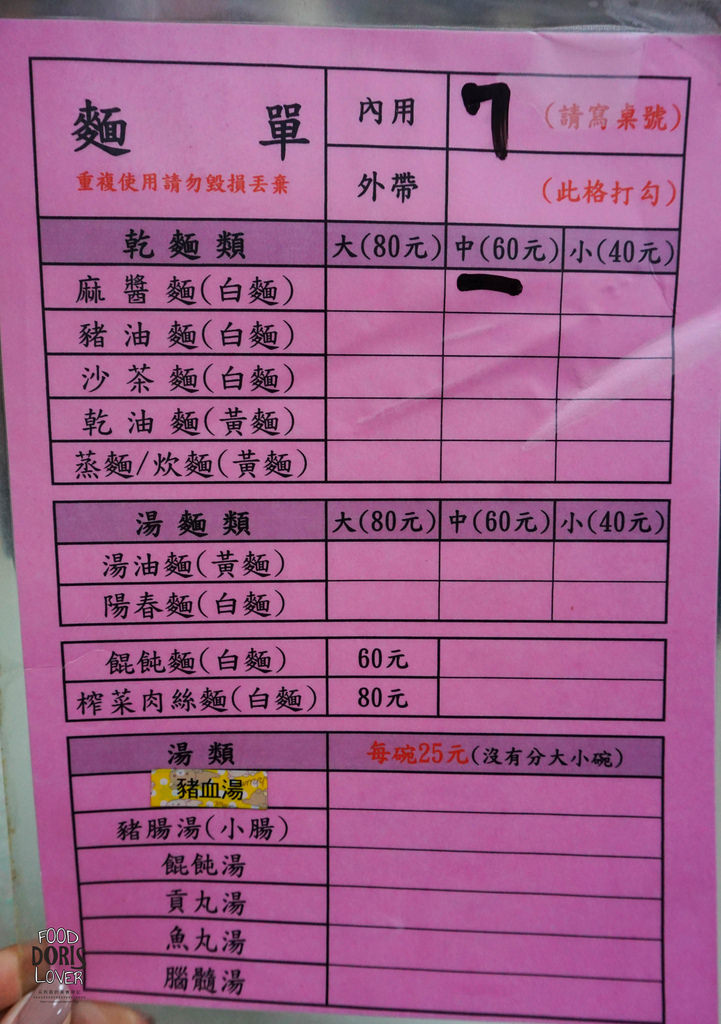 麵單
重複使用請勿毀損丟棄
內用 7 (請寫桌號)
外帶 (此格打勾)
乾麵類 大(80元) 中(60元) 小(40元)
麻醬麵(白麵) 一
豬油麵(白麵)
沙茶麵(白麵)
乾油麵(黃麵)
蒸麵/炊麵(黃麵)
湯麵類 大(80元) 中(60元) 小(40元)
湯油麵(黃麵)
陽春麵(白麵)
餛飩麵(白麵) 60元
榨菜肉絲麵(白麵) 80元
湯類 每碗25元(沒有分大小碗)
豬血湯
豬腸湯(小腸)
餛飩湯
貢丸湯
魚丸湯
腦髓湯
FOOD
DORIS
LOVER